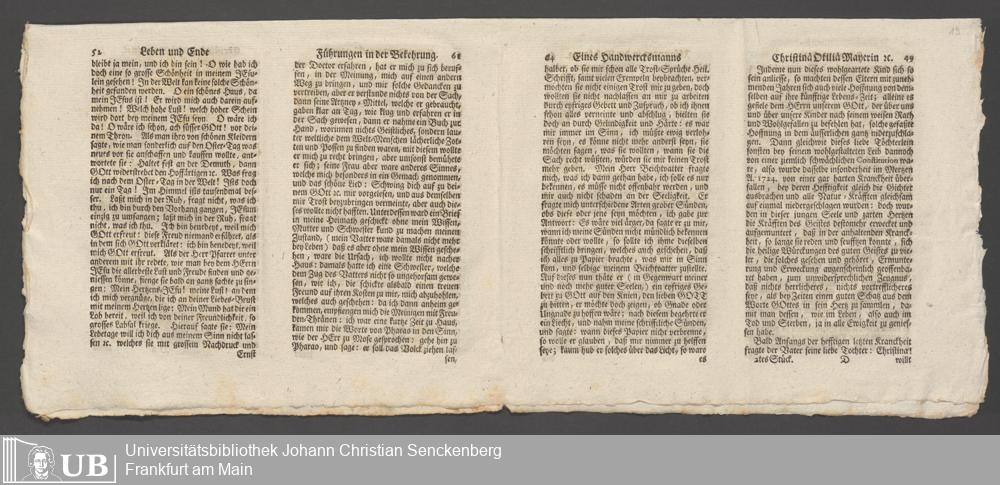 52 Leben und Ende
bleibt ja mein, und ich bin sein! O wie hab ich
doch eine so grosse Schönheit in meinem JEsu-
lein gesehen! In der Welt kan keine solche Schön-
heit gefunden werden. O ein schönes Haus, da
mein JEsus ist! Er wird mich auch darein auf-
nehmen! Welch hohe Lust! welch hoher Schein
wird dort bey meinem JEsu seyn. O wäre ich
da! O wäre ich schon, ach süsser GOtt! vor dei-
nem Thron. Als man ihro von schönen Kleidern
sagte, wie man sonderlich auf den Oster-Tag was
neues vor sie anschaffen und kauffen wollte, ant-
wortete sie: Haltet fest an der Demuth, dann
GOtt widerstrebet den Hoffärtigen ꝛc. Was frag
ich nach dem Oster-Tag in der Welt! Ists doch
nur ein Tag! Im Himmel ists tausendmal bes-
ser. Laßt mich in der Ruh, fragt nicht, was ich
thu, ich bin durch den Vorhang gangen, JEsum
einzig zu umfangen; laßt mich in der Ruh, fragt
nicht, was ich thu. Ich bin benedeyt, weil mich
GOtt erfreut: diese Freud niemand erfähret, als
in dem sich GOtt verkläret: ich bin benedeyt, weil
mich GOtt erfreut. Als der Herr Pfarrer unter
anderem mit ihr redete, wie man bey dem HErrn
JEsu die allerbeste Lust und Freude finden und ge-
niessen könne, fienge sie bald an ganz sachte zu sin-
gen: Mein Hertzens-JEsu! meine Lust! an dem
ich mich vergnüge, die ich an deiner Liebes-Brust
mit meinem Hertzen lige: Mein Mund hat dir ein
Lob bereit, weil ich von deiner Freundlichkeit, so
grosses Labsal kriege. Hierauf sagte sie: Mein
Lebetage will ich dich aus meinem Sinn nicht las-
sen ꝛc. welches sie mit grossem Nachdruck und
Ernst
Führungen in der Bekehrung. 61
der Doctor erfahren, hat er mich zu sich beruf-
fen, in der Meinung, mich auf einen andern
Weg zu bringen, und mir solche Gedancken zu
vertreiben, aber er verstunde nichts von der Sach,
dann seine Artzney-Mittel, welche er gebraucht,
gaben klar an Tag, wie klug und erfahren er in
der Sach gewesen, dann er nahm ein Buch zur
Hand, worinnen nichts Geistliches, sondern lau-
ter weltliche dem Welt-Menschen lächerliche Zot-
ten und Possen zu finden waren, mit diesem wollte
er mich zu recht bringen, aber umsonst bemühete
er sich; seine Frau aber ware anderes Sinnes,
welche mich besonders in ein Gemach genommen,
und das schöne Lied: Schwing dich auf zu dei-
nem GOtt ꝛc. mir vorgelesen, und aus demselben
mir Trost beyzubringen vermeinte, aber auch die-
ses wollte nicht hafften. Unterdessen ward ein Brief
in meine Heimath geschickt ohne mein Wissen,
Mutter und Schwester kund zu machen meinen
Zustand, (mein Vatter ware damals nicht mehr
bey Leben) daß es aber ohne mein Wissen gesche-
hen, ware die Ursach, ich wollte nicht nacher
Haus: damals hatte ich eine Schwester, welche
dem Zug des Vatters nicht so ungehorsam gewe-
sen, wie ich, die schickte alsbald einen treuen
Freund auf ihren Kosten zu mir, mich abzuholen,
welches auch geschehen: da ich dann anheim ge-
kommen, empfiengen mich die Meinigen mit Freu-
den-Thränen: ich war eine kurtze Zeit zu Haus,
kamen mir die Worte von Pharao in den Sinn,
wie der HErr zu Mose gesprochen: gehe hin zu
Pharao, und sage: er soll das Volck ziehen las-
sen,
64 Eines Handwercksmanns
halber, ob sie mir schon alle Trost-Sprüche Heil.
Schrifft, samt vielen Exempeln beybrachten, ver-
mochten sie nicht einigen Trost mir zu geben, doch
wollten sie nicht nachlassen an mir zu arbeiten
durch eyfriges Gebett und Zuspruch, ob ich ihnen
schon alles verneinte und abschlug, hielten sie
doch an durch Gelindigkeit und Härte: es war
mir immer im Sinn, ich müßte ewig verloh-
ren seyn, es könne nicht mehr anderst seyn, sie
möchten sagen, was sie wollten, wann sie die
Sach recht wüßten, würden sie mir keinen Trost
mehr geben. Mein Herr Beichtvatter fragte
mich, was ich dann gethan habe, ich solle es nur
bekennen, es müsse nicht offenbahr werden, und
mir auch nicht schaden an der Seeligkeit. Er
fragte mich unterschiedene Arten grober Sünden,
obs diese oder jene seyn möchten, ich gabe zur
Antwort: Es wäre viel ärger, da sagte er zu mir,
wann ich meine Sünden nicht mündlich bekennen
könnte oder wollte, so sollte ich ihme dieselben
schrifftlich bringen, welches auch geschehen, daß
ich alles zu Papier brachte, was mir in Sinn
kam, und selbige meinem Beichtvatter zustellte.
Auf dieses nun thäte er (in Gegenwart meiner
und noch mehr guter Seelen) ein eyfriges Ge-
bett zu GOtt auf den Knien, den lieben GOTT
zu bitten, er möchte doch zeigen, ob Gnade oder
Ungnade zu hoffen wäre: nach diesem begehrte er
ein Liecht, und nahm meine schrifftliche Sünden,
und sagte: wann dieses Papier nicht verbrenne,
so wolle er glauben, daß mir nimmer zu helffen
seye; kaum hub er solches über das Licht, so ware
es
Christinä Otiliä Mayerin ꝛc. 49
Indeme nun dieses wohlgeartete Kind sich so
fein anliesse, so machten dessen Eltern mit zuneh-
menden Jahren sich auch viele Hoffnung von dem-
selben auf ihre künfftige Lebens-Zeit; alleine es
gefiele dem HErrn unserem GOtt, der über uns
und über unsere Kinder nach seinem weisen Rath
und Wohlgefallen zu befehlen hat, solche gefaßte
Hoffnung in dem äusserlichen gantz niderzuschla-
gen. Dann gleichwie dieses liebe Töchterlein
sonsten bey seinem wohlgestalteten Leib dannoch
von einer ziemlich schwächlichen Constitution wa-
re, also wurde dasselbe insonderheit im Mertzen
A. 1724. von einer gar harten Kranckheit über-
fallen, bey deren Hefftigkeit gleich die Gichter
ausbrachen und alle Natur-Kräfften gleichsam
auf einmal niedergeschlagen wurden: doch wur-
den in dieser jungen Seele und zarten Hertzen
die Kräfften des Geistes destomehr erwecket und
aufgemuntert, daß in der anhaltenden Kranck-
heit, so lange sie reden und seufftzen konnte, sich
die heilige Würckungen des guten Geistes zu vie-
ler, die solches gesehen und gehöret, Ermunte-
rung und Erweckung augenscheinlich geoffenba-
ret haben, zum unwidersprechlichen Zeugnus,
daß nichts herrlicheres, nichts vortrefflicheres
seye, als bey Zeiten einen guten Schatz aus dem
Worte GOttes in sein Hertz zu sammlen, da-
mit man dessen, wie im Leben, also auch im
Tod und Sterben, ja in alle Ewigkeit zu genies-
sen habe.
Bald Anfangs der hefftigen letzten Kranckheit
fragte der Vater seine liebe Tochter: Christina!
2tes Stück. D willt
UB
Universitätsbibliothek Johann Christian Senckenberg
Frankfurt am Main